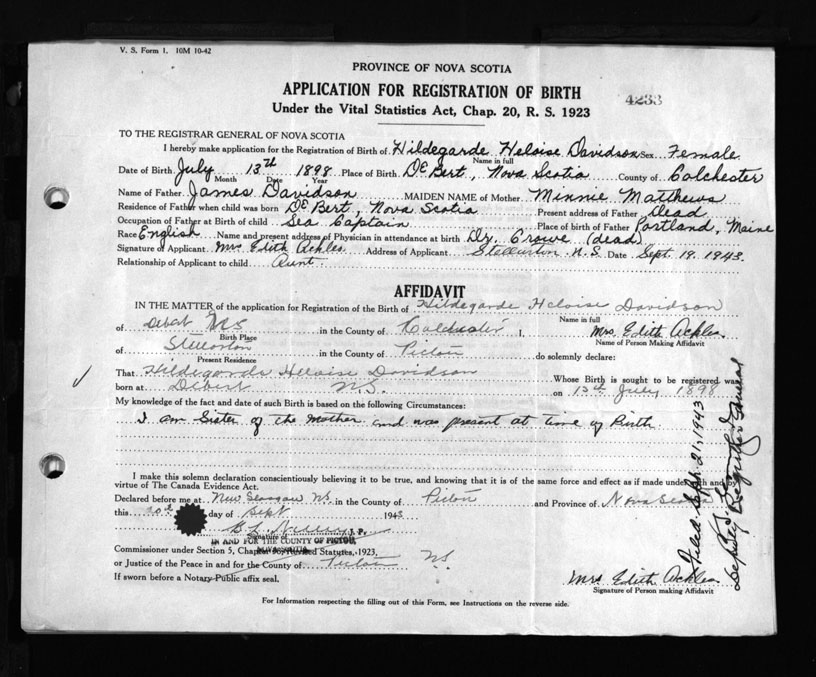 V. S. Form 1. 10M 10-42
PROVINCE OF NOVA SCOTIA
APPLICATION FOR REGISTRATION OF BIRTH
4233
Under the Vital Statistics Act, Chap. 20, R. S. 1923
TO THE REGISTRAR GENERAL OF NOVA SCOTIA
I hereby make application for the Registration of Birth of Hildegarde Heloise Davidson Sex Female
Name in full
Date of Birth July 13th 1898 Place of Birth DeBert, Nova Scotia County of Colchester
Month Date Year
Name of Father James Davidson MAIDEN NAME of Mother Minnie Matthews
Residence of Father when child was born DeBert, Nova Scotia Present address of Father Dead
Occupation of Father at Birth of child Sea Captain Place of birth of Father Portland, Maine
Race English Name and present address of Physician in attendance at birth Dr. Crowe (dead)
Signature of Applicant Mrs Edith Ackles Address of Applicant Stellarton N.S. Date Sept. 19. 1943.
Relationship of Applicant to child Aunt.
AFFIDAVIT
IN THE MATTER of the application for Registration of the Birth of Hildegarde Heloise Davidson
Name in full
of Debert NS in the County of Colchester I, Mrs. Edith Ackles
Birth Place
Name of Person Making Affidavit
of Stellarton in the County of Pictou do solemnly declare:
Present Residence
That Hildegarde Heloise Davidson Whose Birth is sought to be registered was
born at Debert N.S. on 13th July 1898
My knowledge of the fact and date of such Birth is based on the following Circumstances:
I am Sister of the Mother and was present at time of Birth.
I make this solemn declaration conscientiously believing it to be true, and knowing that it is of the same force and effect as if made under oath and by
virtue of The Canada Evidence Act.
Declared before me at New Glasgow NS. in the County of Pictou and Province of Nova
this 20th day of Sept 1943
Signature of J. P.
IN AND FOR THE COUNTY OF PICTOU,
Commissioner under Section 5, Chapter Revised Statutes, 1923,
or Justice of the Peace in and for the County of Pictou NS
If sworn before a Notary Public affix seal.
Mrs. Edith Ackles
Signature of Person making Affidavit
For Information respecting the filling out of this Form, see Instructions on the reverse side.
Filed Sept. 21, 1943
Deputy Registrar General